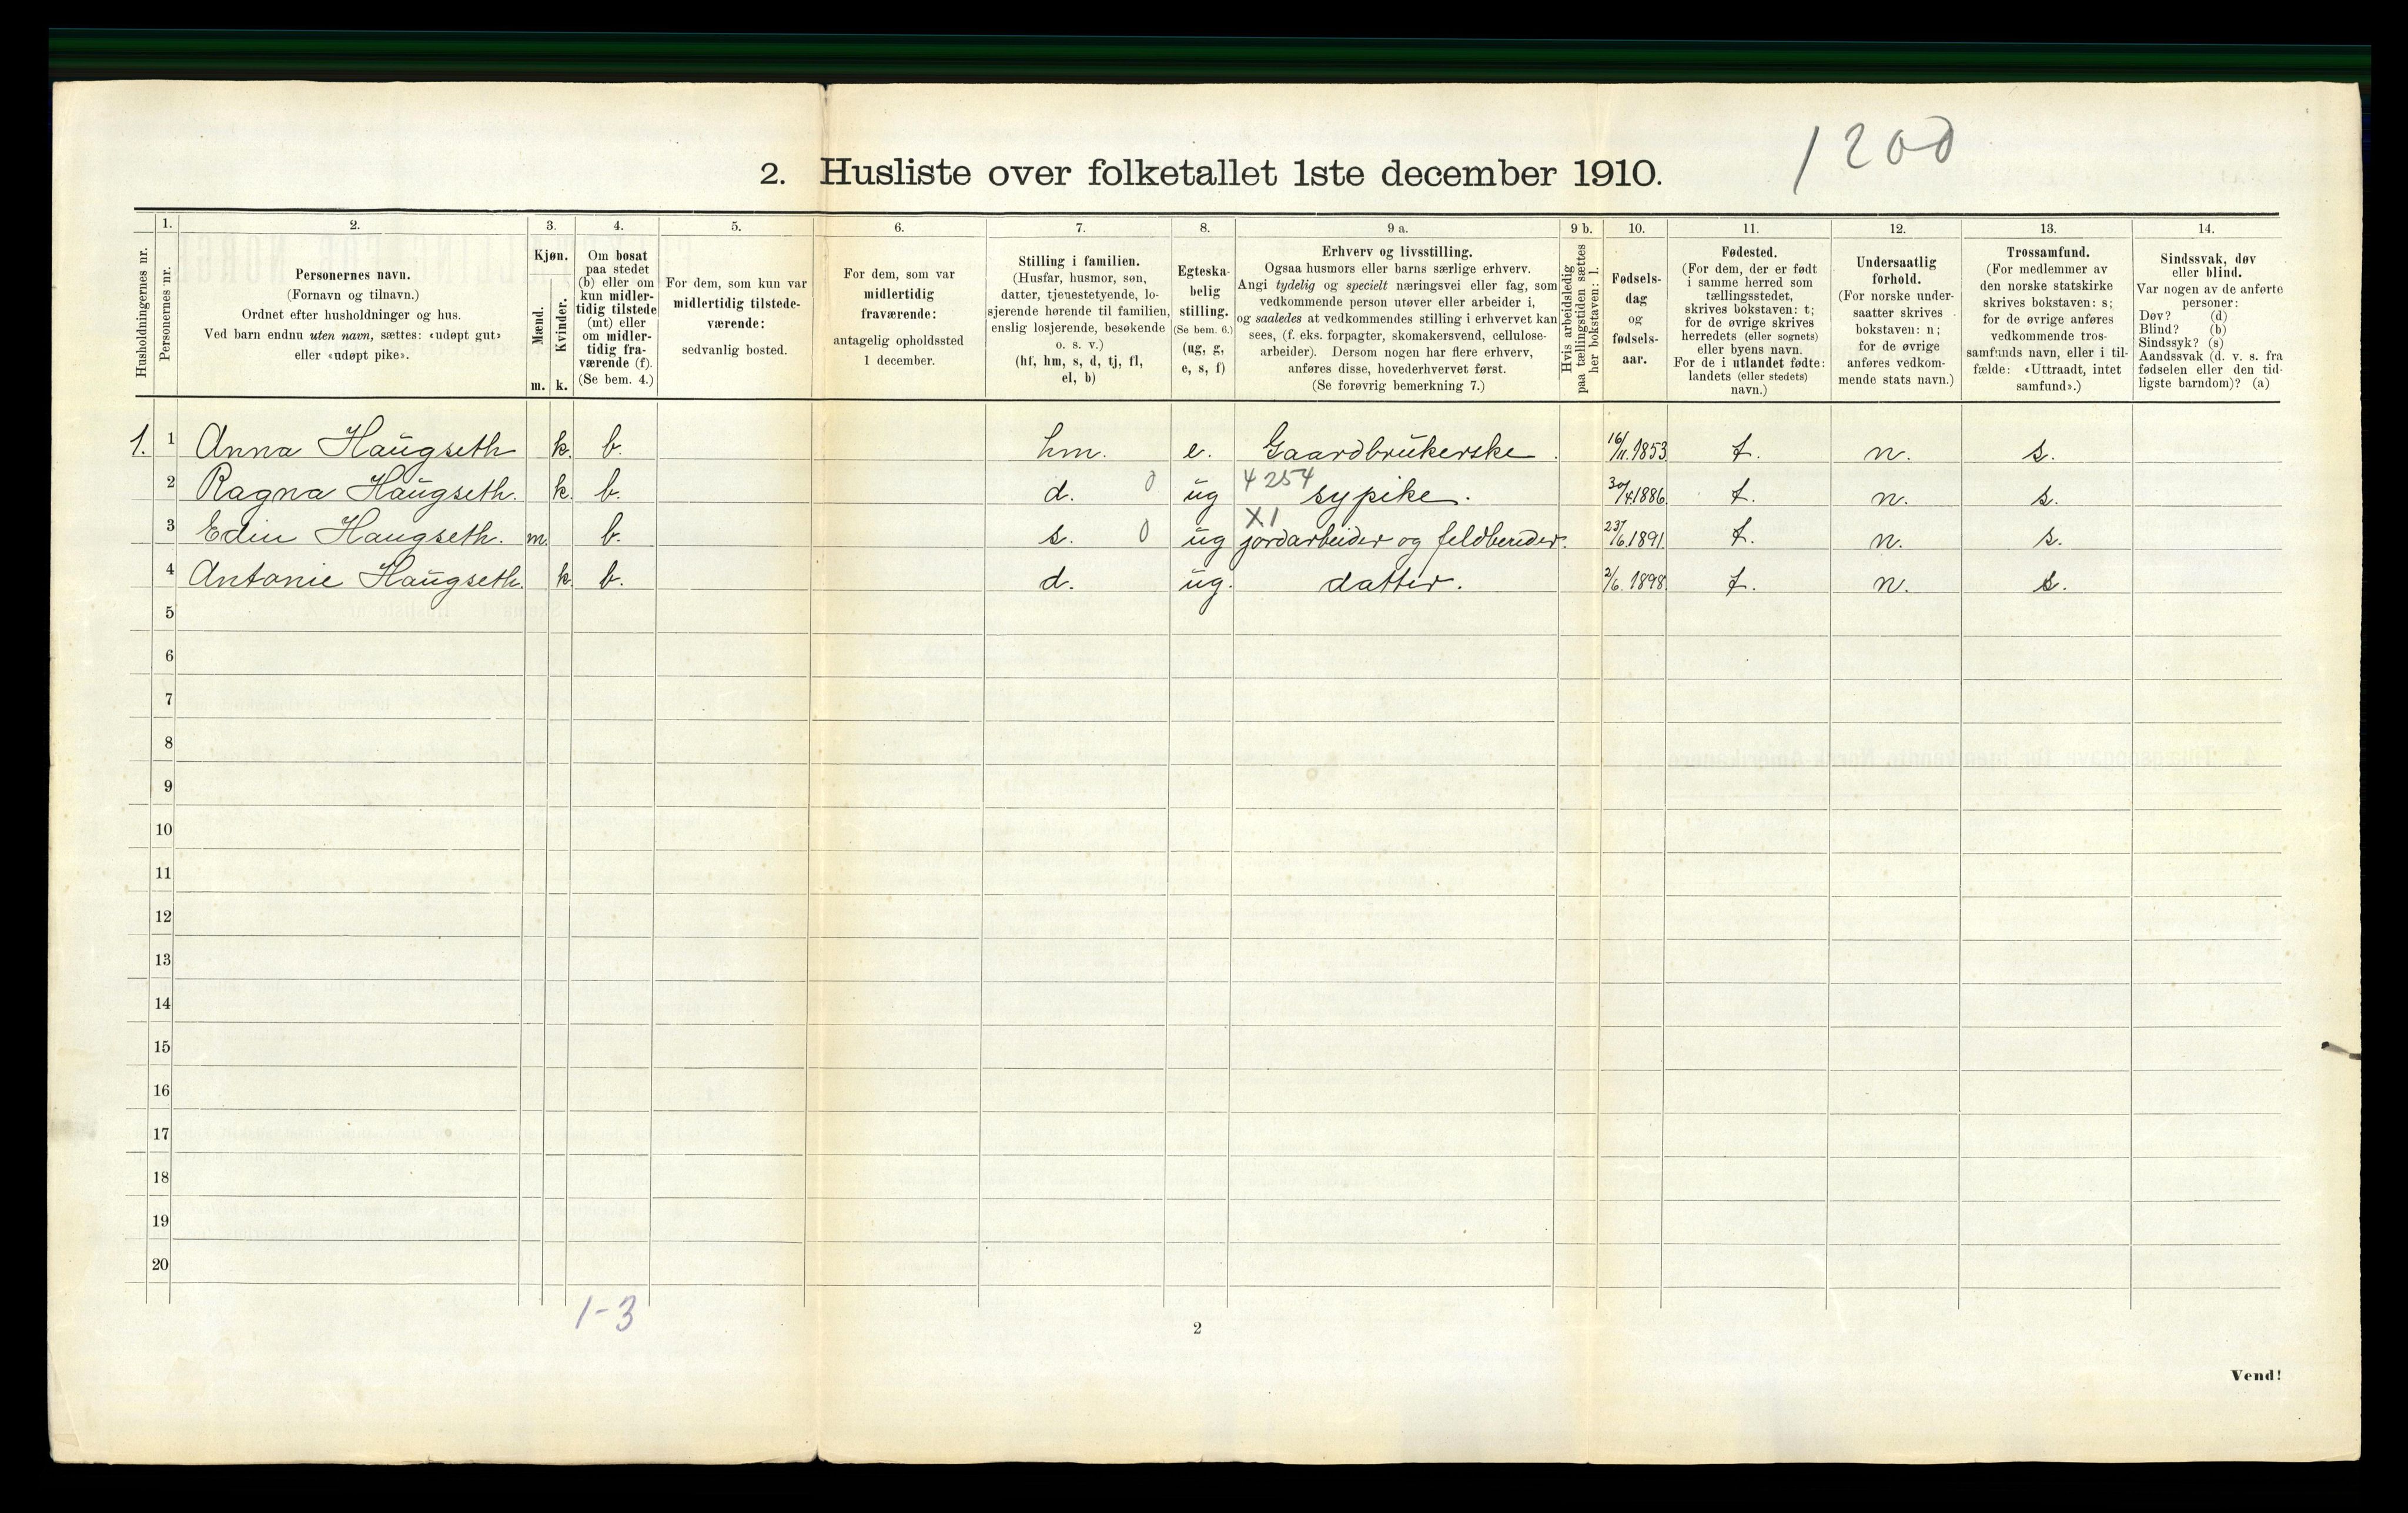 1200
2. Husliste over folketallet 1ste december 1910.
Husholdningernes nr.
1.
Personernes nr.
2.
Personernes navn.
(Fornavn og tilnavn.)
Ordnet efter husholdninger og hus.
Ved barn endnu uten navn, sættes: «udøpt gut»
eller «udøpt pike».
3.
Kjøn.
Mænd.
m.
Kvinder.
k.
4.
Om bosat
paa stedet
(b) eller om
kun midler-
tidig tilstede
(mt) eller
om midler-
tidig fra-
værende (f).
(Se bem. 4.)
5.
For dem, som kun var
midlertidig tilstede-
værende:
sedvanlig bosted.
6.
For dem, som var
midlertidig
fraværende:
antagelig opholdssted
1 december.
7.
Stilling i familien.
(Husfar, husmor, søn,
datter, tjenestetyende, lo-
sjerende hørende til familien,
enslig losjerende, besøkende
o. s. v.)
(hf, hm, s, d, tj, fl,
el, b)
8.
Egteska-
belig
stilling.
(Se bem. 6.)
(ug, g,
e, s, f)
9 a.
Erhverv og livsstilling.
Ogsaa husmors eller barns særlige erhverv.
Angi tydelig og specielt næringsvei eller fag, som
vedkommende person utøver eller arbeider i,
og saaledes at vedkommendes stilling i erhvervet kan
sees, (f. eks. forpagter, skomakersvend, cellulose-
arbeider). Dersom nogen har flere erhverv,
anføres disse, hovederhvervet først.
(Se forøvrig bemerkning 7.)
9 b.
Hvis arbeidsledig
paa tællingstiden sættes
her bokstaven: l.
10.
Fødsels-
dag
og
fødsels-
aar.
11.
Fødested.
(For dem, der er født
i samme herred som
tællingsstedet,
skrives bokstaven: t;
for de øvrige skrives
herredets (eller sognets)
eller byens navn.
For de i utlandet fødte:
landets (eller stedets)
navn.)
12.
Undersaatlig
forhold.
(For norske under-
saatter skrives
bokstaven: n;
for de øvrige
anføres vedkom-
mende stats navn.)
13.
Trossamfund.
(For medlemmer av
den norske statskirke
skrives bokstaven: s;
for de øvrige anføres
vedkommende tros-
samfunds navn, eller i til-
fælde: «Uttraadt, intet
samfund».)
14.
Sindssvak, døv
eller blind.
Var nogen av de anførte
personer:
Døv? (d)
Blind? (b)
Sindssyk? (s)
Aandssvak (d. v. s. fra
fødselen eller den tid-
ligste barndom)? (a)
1. 1 Anna Haugseth k. b. hm. e. Gaardbrukerske. 16/11.1853 t. n. s.
2 Ragna Haugseth. k. b. d. 0 ug 4254 sypike. 30/4.1886 t. n. s.
3 Edin Haugseth. m. b. s. 0 ug X1 jordarbeider og feldbereder. 23/6.1891. t. n. s.
4 Antonie Haugseth. k. b. d. ug. datter. 2/6.1898. t. n. s.
5
6
7
8
9
10
11
12
13
14
15
16
17
18
19
20
1-3
2
Vend!